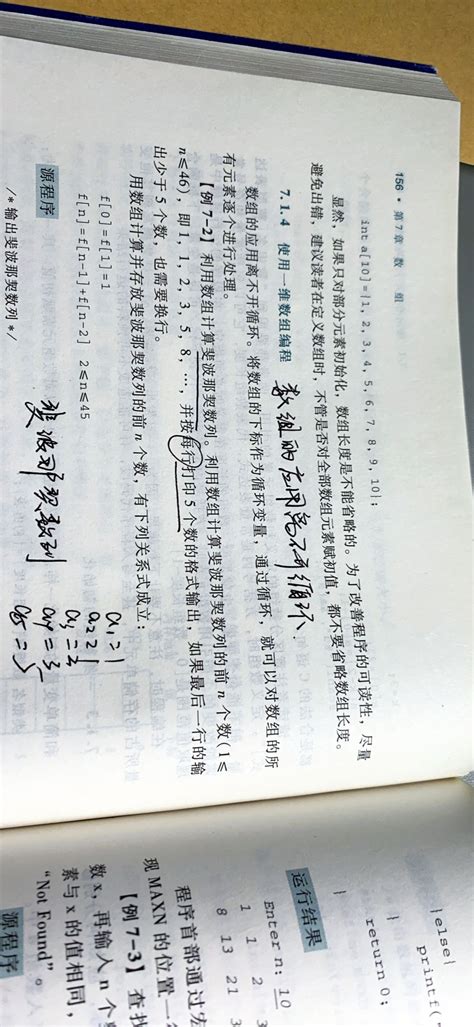 156 · 第7章 数 组
int a[10]={1, 2, 3, 4, 5, 6, 7, 8, 9, 10};
显然，如果只对部分元素初始化，数组长度是不能省略的。为了改善程序的可读性，尽量
避免出错，建议读者在定义数组时，不管是否对全部数组元素赋初值，都不要省略数组长度。
7.1.4 使用一维数组编程
数组的应用离不开循环
数组的应用离不开循环。将数组的下标作为循环变量，通过循环，就可以对数组的所
有元素逐个进行处理。
【例7-2】利用数组计算斐波那契数列。利用数组计算斐波那契数列的前 n 个数（1≤
n≤46），即 1, 1, 2, 3, 5, 8, …，并按每行打印 5 个数的格式输出，如果最后一行的输
出少于 5 个数，也需要换行。
用数组计算并存放斐波那契数列的前 n 个数，有下列关系式成立：
f[0]=f[1]=1
f[n]=f[n-1]+f[n-2] 2≤n≤45
a₁=1
a₂=1
a₃=2
a₄=3
a₅=5
斐波那契数列
源程序
/*输出斐波那契数列*/
}else{
printf("
}
return 0;
}
运行结果
Enter n: 10
1 1 2 3
8 13 21 3
程序首部通过宏
现 MAXN 的位置一
【例7-3】查找
数 x，再输入 n 个
素与 x 的值相同，
"Not Found"。
源程序